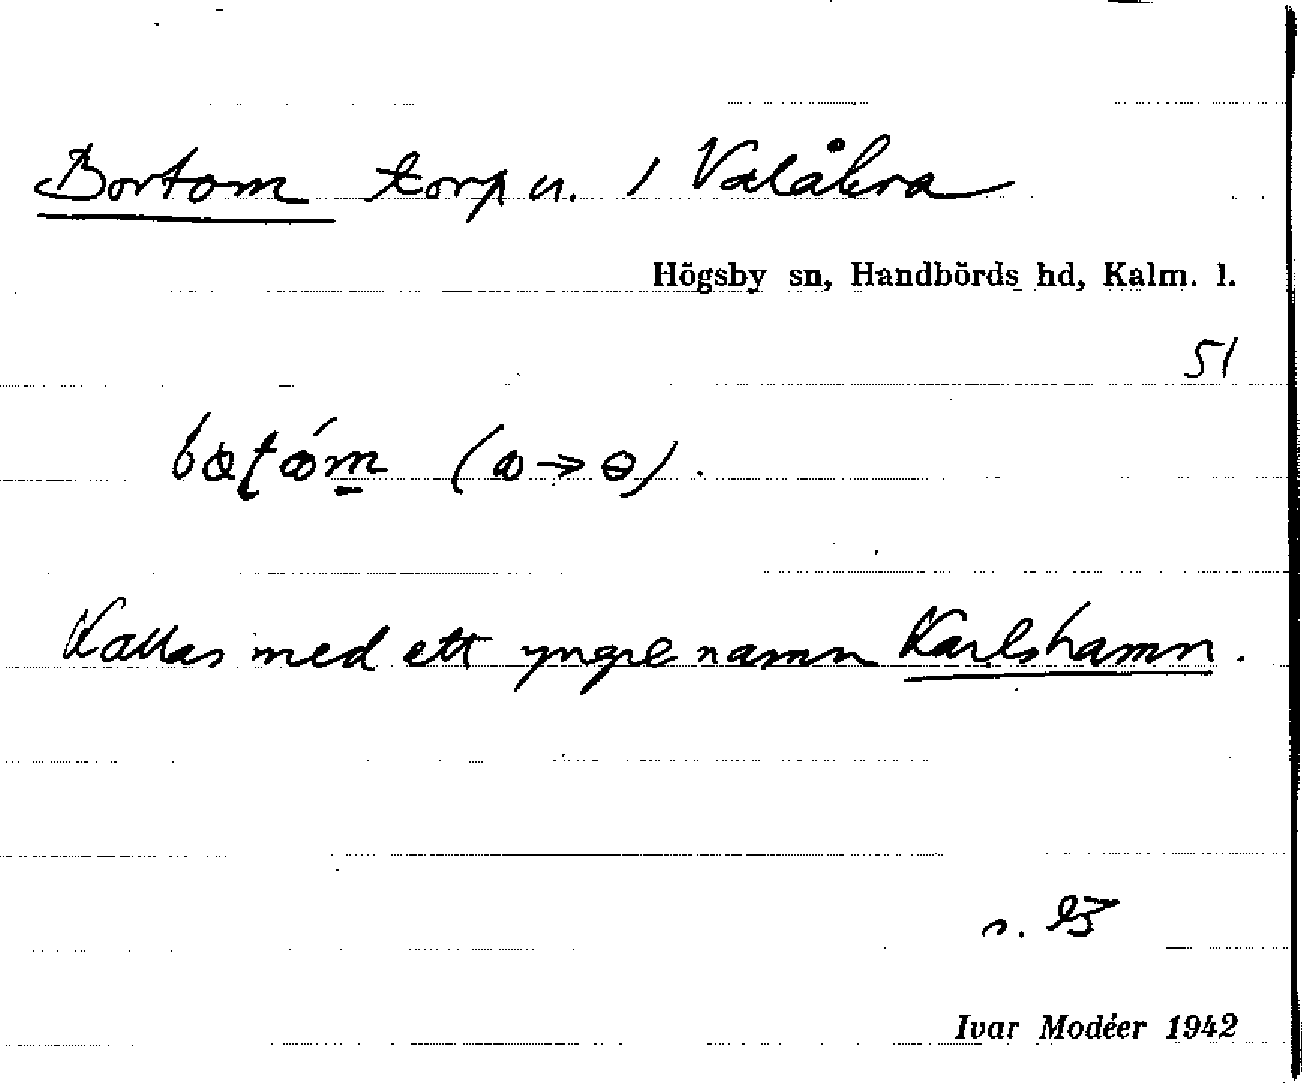 Bortom torp u. / Valåkra
Högsby sn, Handbörds hd, Kalm. l.
51
Kallas med ett yngre namn Karlshamn.
Ivar Modéer 1942